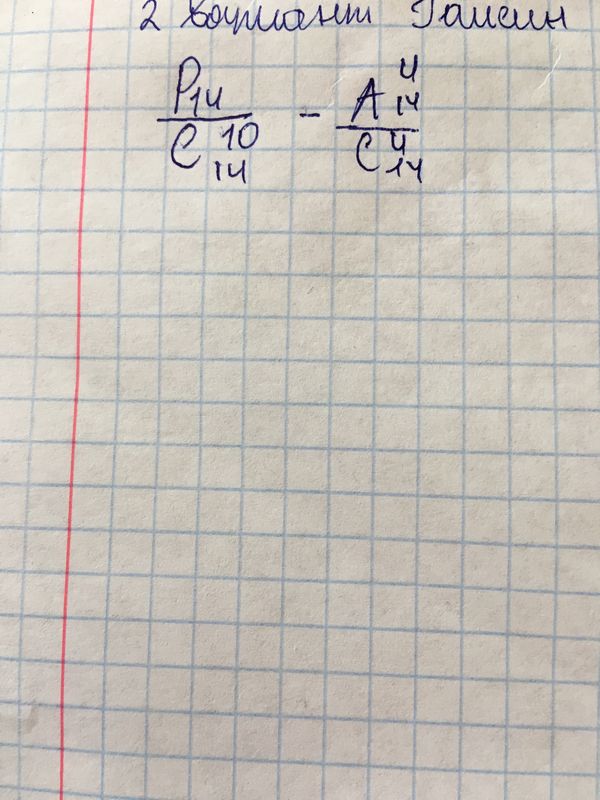 2 вариант Гамсин
P₁₄ / C₁₄¹⁰ - A₁₄⁴ / C₁₄⁴